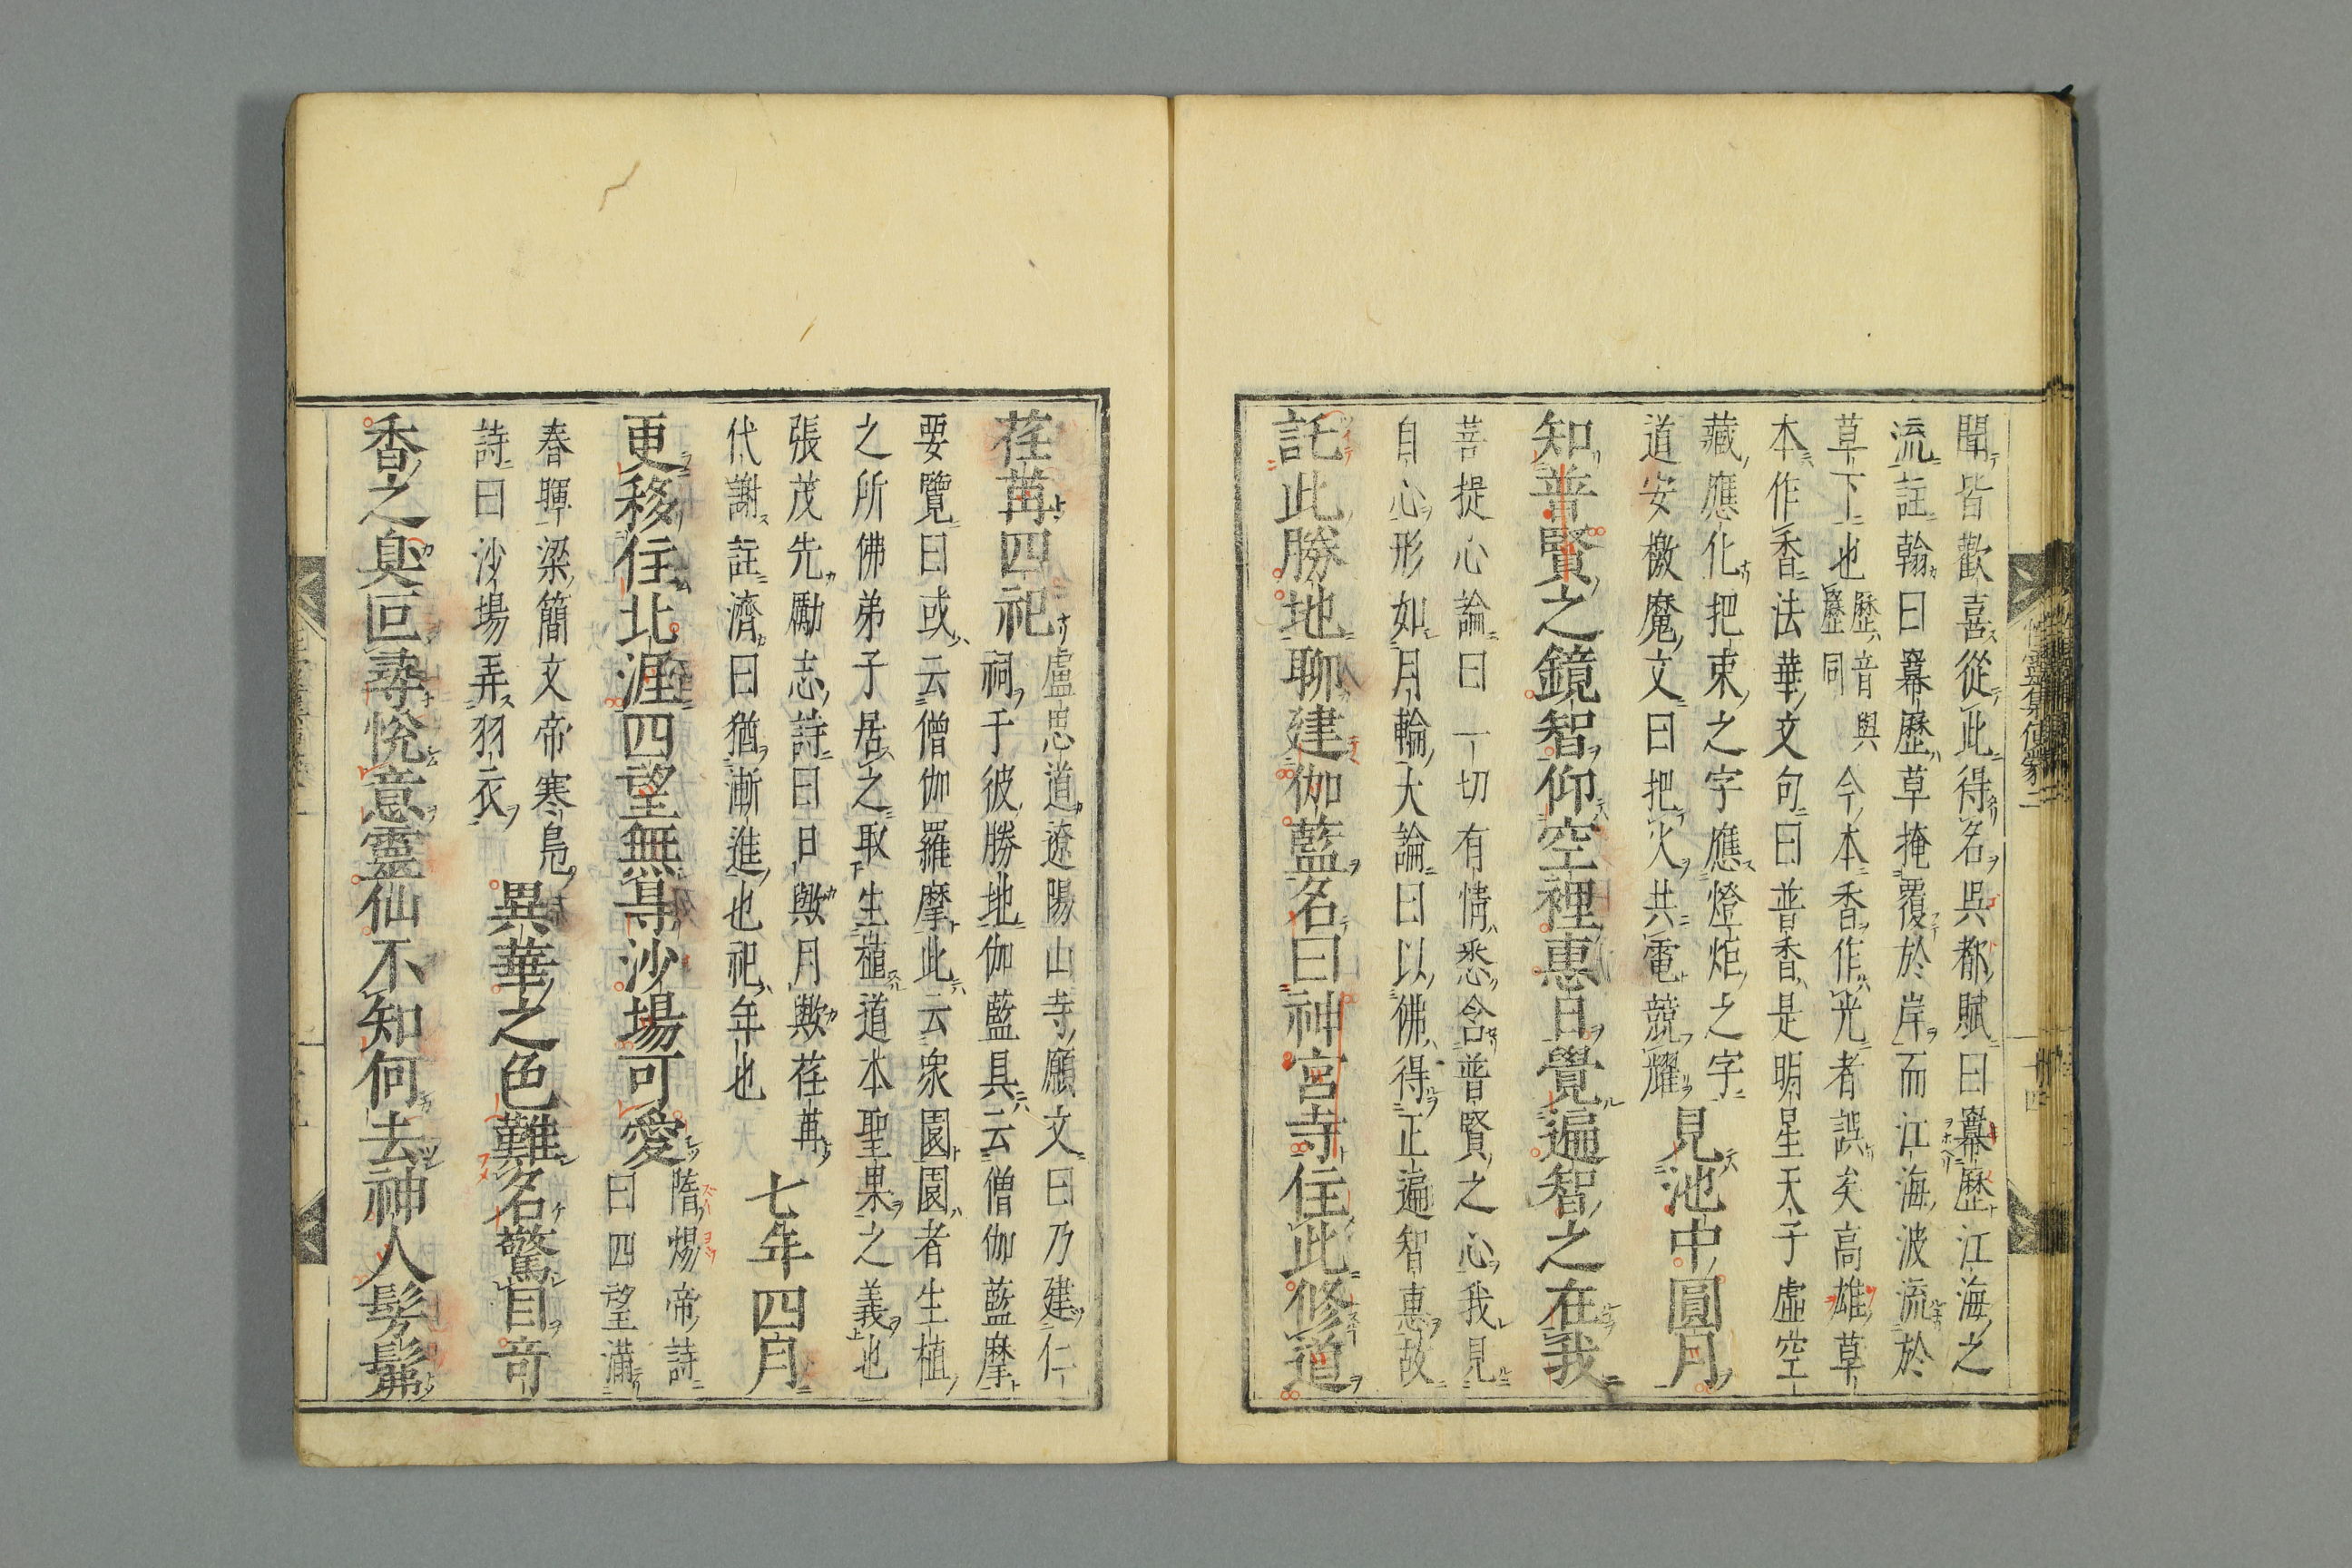 聞皆歡喜從此得名呉都賦曰羃歷江海之
流註翰曰羃歷草掩覆於岸而江海波流於
草下也歷音與藶同今本香作光者誤矣高雄草
本作香法華文句曰普香是明星天子虛空
藏應化把束之字應燈炬之字
道安檄魔文曰把火共電競耀
見池中圓月
知普賢之鏡智仰空裡惠日覺遍智之在我
菩提心論曰一切有情悉含普賢之心我見
自心形如月輪大論曰以佛得正遍智惠故
託此勝地聊建伽藍名曰神宮寺住此修道
荏苒四祀
盧思道遼陽山寺願文曰乃建仁
祠于彼勝地伽藍具云僧伽藍摩
要覽曰或云僧伽羅摩此云衆園園者生植
之所佛弟子居之取生植道本聖果之義也
張茂先勵志詩曰日歟月歟荏苒
代謝註濟曰猶漸進也祀年也
七年四月
更移住北涯四望無㝵沙場可愛
隋煬帝詩
曰四望滿
春暉梁簡文帝寒鳧
詩曰沙場弄羽衣
異華之色難名驚目竒
香之臭叵尋悅意靈仙不知何去神人髣髴